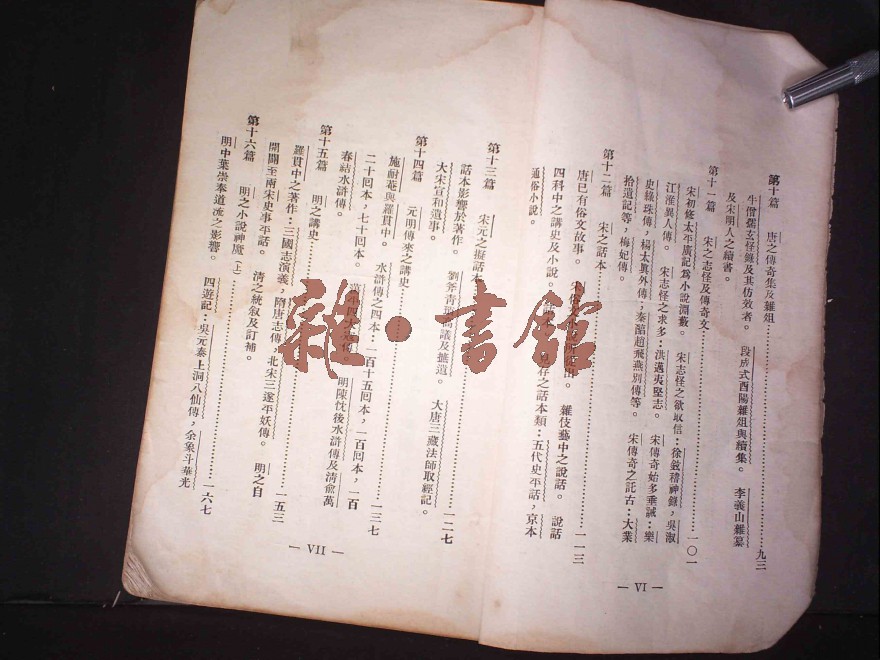 第十篇　唐之傳奇集及雜俎……九三
牛僧孺玄怪錄及其仿效者。　段成式酉陽雜俎與續集。　李義山雜纂
及宋明人之續書。
第十一篇　宋之志怪及傳奇文……一〇一
宋初修太平廣記爲小說淵藪。　宋志怪之欲取信：徐鉉稽神錄，吳淑
江淮異人傳。　宋志怪之求多：洪邁夷堅志。　宋傳奇始多垂誡：樂
史綠珠傳，楊太眞外傳，秦醇趙飛燕別傳等。　宋傳奇之託古：大業
拾遺記等，梅妃傳。
第十二篇　宋之話本……一一三
唐已有俗文故事。　雜伎藝中之說話。　說話
四科中之講史及小說。　存之話本類：五代史平話，京本
通俗小說。
— VI —
第十三篇　宋元之擬話本……一二七
話本影響於著作。　劉斧青瑣高議及摭遺。　大唐三藏法師取經記。
大宋宣和遺事。
第十四篇　元明傳來之講史……一三七
施耐菴與羅貫中。　水滸傳之四本：一百十五回本，一百回本，一百
二十回本，七十回本。　明陳忱後水滸傳及淸俞萬
春結水滸傳。
第十五篇　明之講史……一五三
羅貫中之著作：三國志演義，隋唐志傳，北宋三遂平妖傳。　明之自
開闢至兩宋史事平話。　淸之統叙及訂補。
第十六篇　明之小說神魔（上）……一六七
明中葉崇奉道流之影響。　四遊記：吳元泰上洞八仙傳，余象斗華光
— VII —
雜·書館